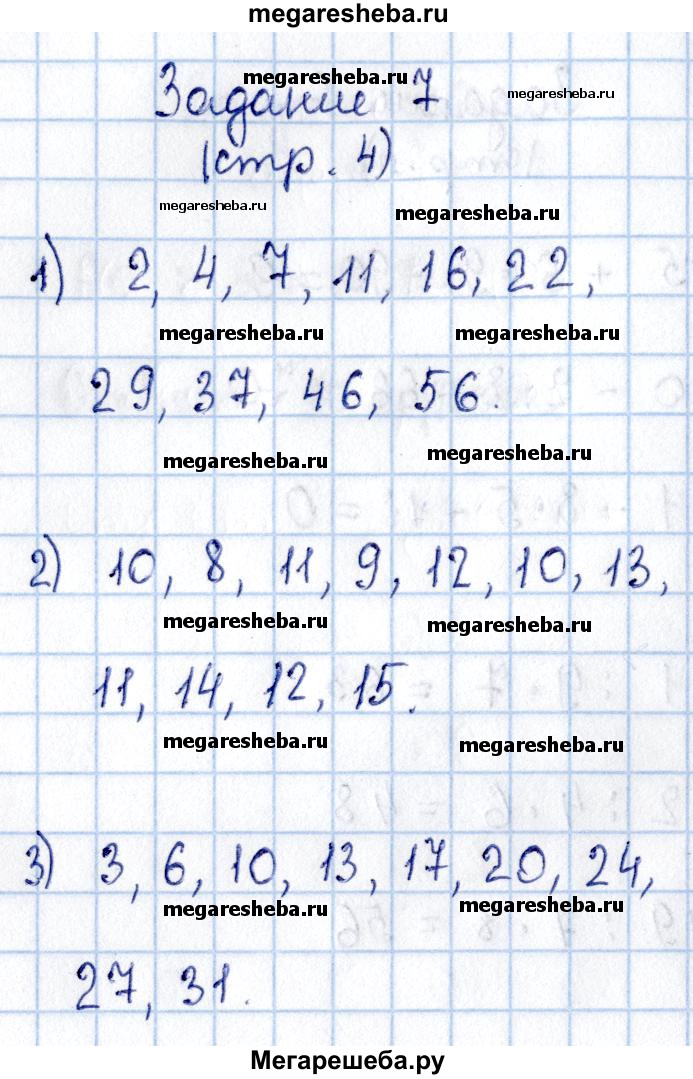 megaresheba.ru
Задание 7
megaresheba.ru
megaresheba.ru
(стр. 4)
megaresheba.ru
megaresheba.ru
1) 2, 4, 7, 11, 16, 22,
megaresheba.ru megaresheba.ru
29, 37, 46, 56.
megaresheba.ru megaresheba.ru
2) 10, 8, 11, 9, 12, 10, 13,
megaresheba.ru megaresheba.ru
11, 14, 12, 15.
megaresheba.ru megaresheba.ru
3) 3, 6, 10, 13, 17, 20, 24,
megaresheba.ru megaresheba.ru
27, 31.
Мегарешеба.ру